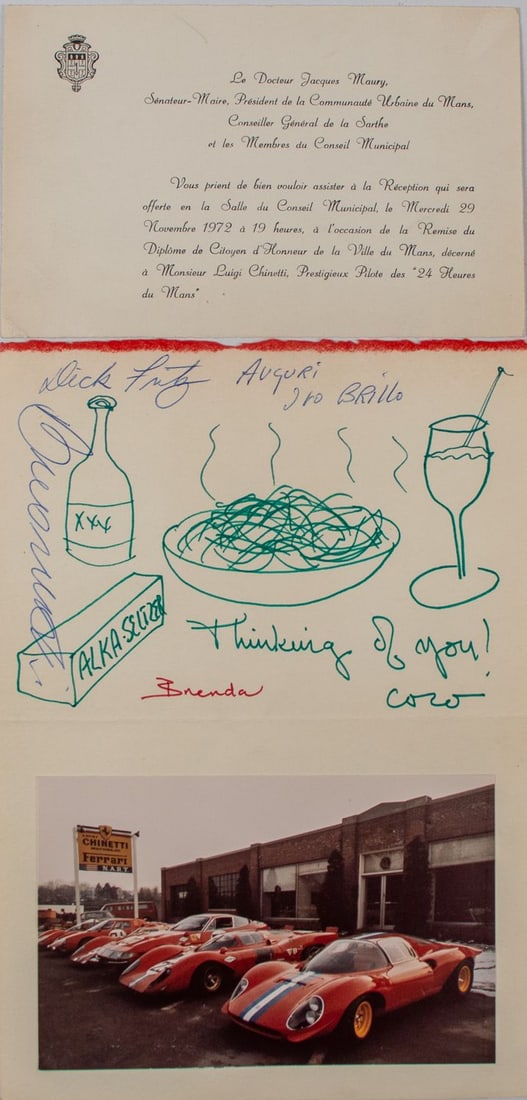 Le Docteur Jacques Maury,
Sénateur-Maire, Président de la Communauté Urbaine du Mans,
Conseiller Général de la Sarthe
et les Membres du Conseil Municipal
Vous prient de bien vouloir assister à la Réception qui sera
offerte en la Salle du Conseil Municipal, le Mercredi 29
Novembre 1972 à 19 heures, à l'occasion de la Remise du
Diplôme de Citoyen d'Honneur de la Ville du Mans, décerné
à Monsieur Luigi Chinetti, Prestigieux Pilote des "24 Heures
du Mans"
Dick Fritz
AUGURI
IVO BRILLO
XXX
ALKA-SELTZER
Thinking of you!
Coco
Brenda
CHINETTI
Ferrari
NART